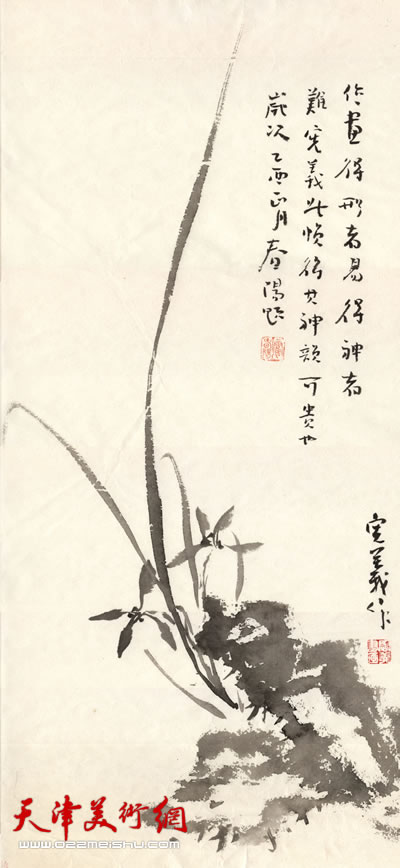 作畫得形者易得神者
難宪義此幀得其神頗可貴也
歲次乙酉正月春陽題
宪義作
天津美術網
www.022meishu.com